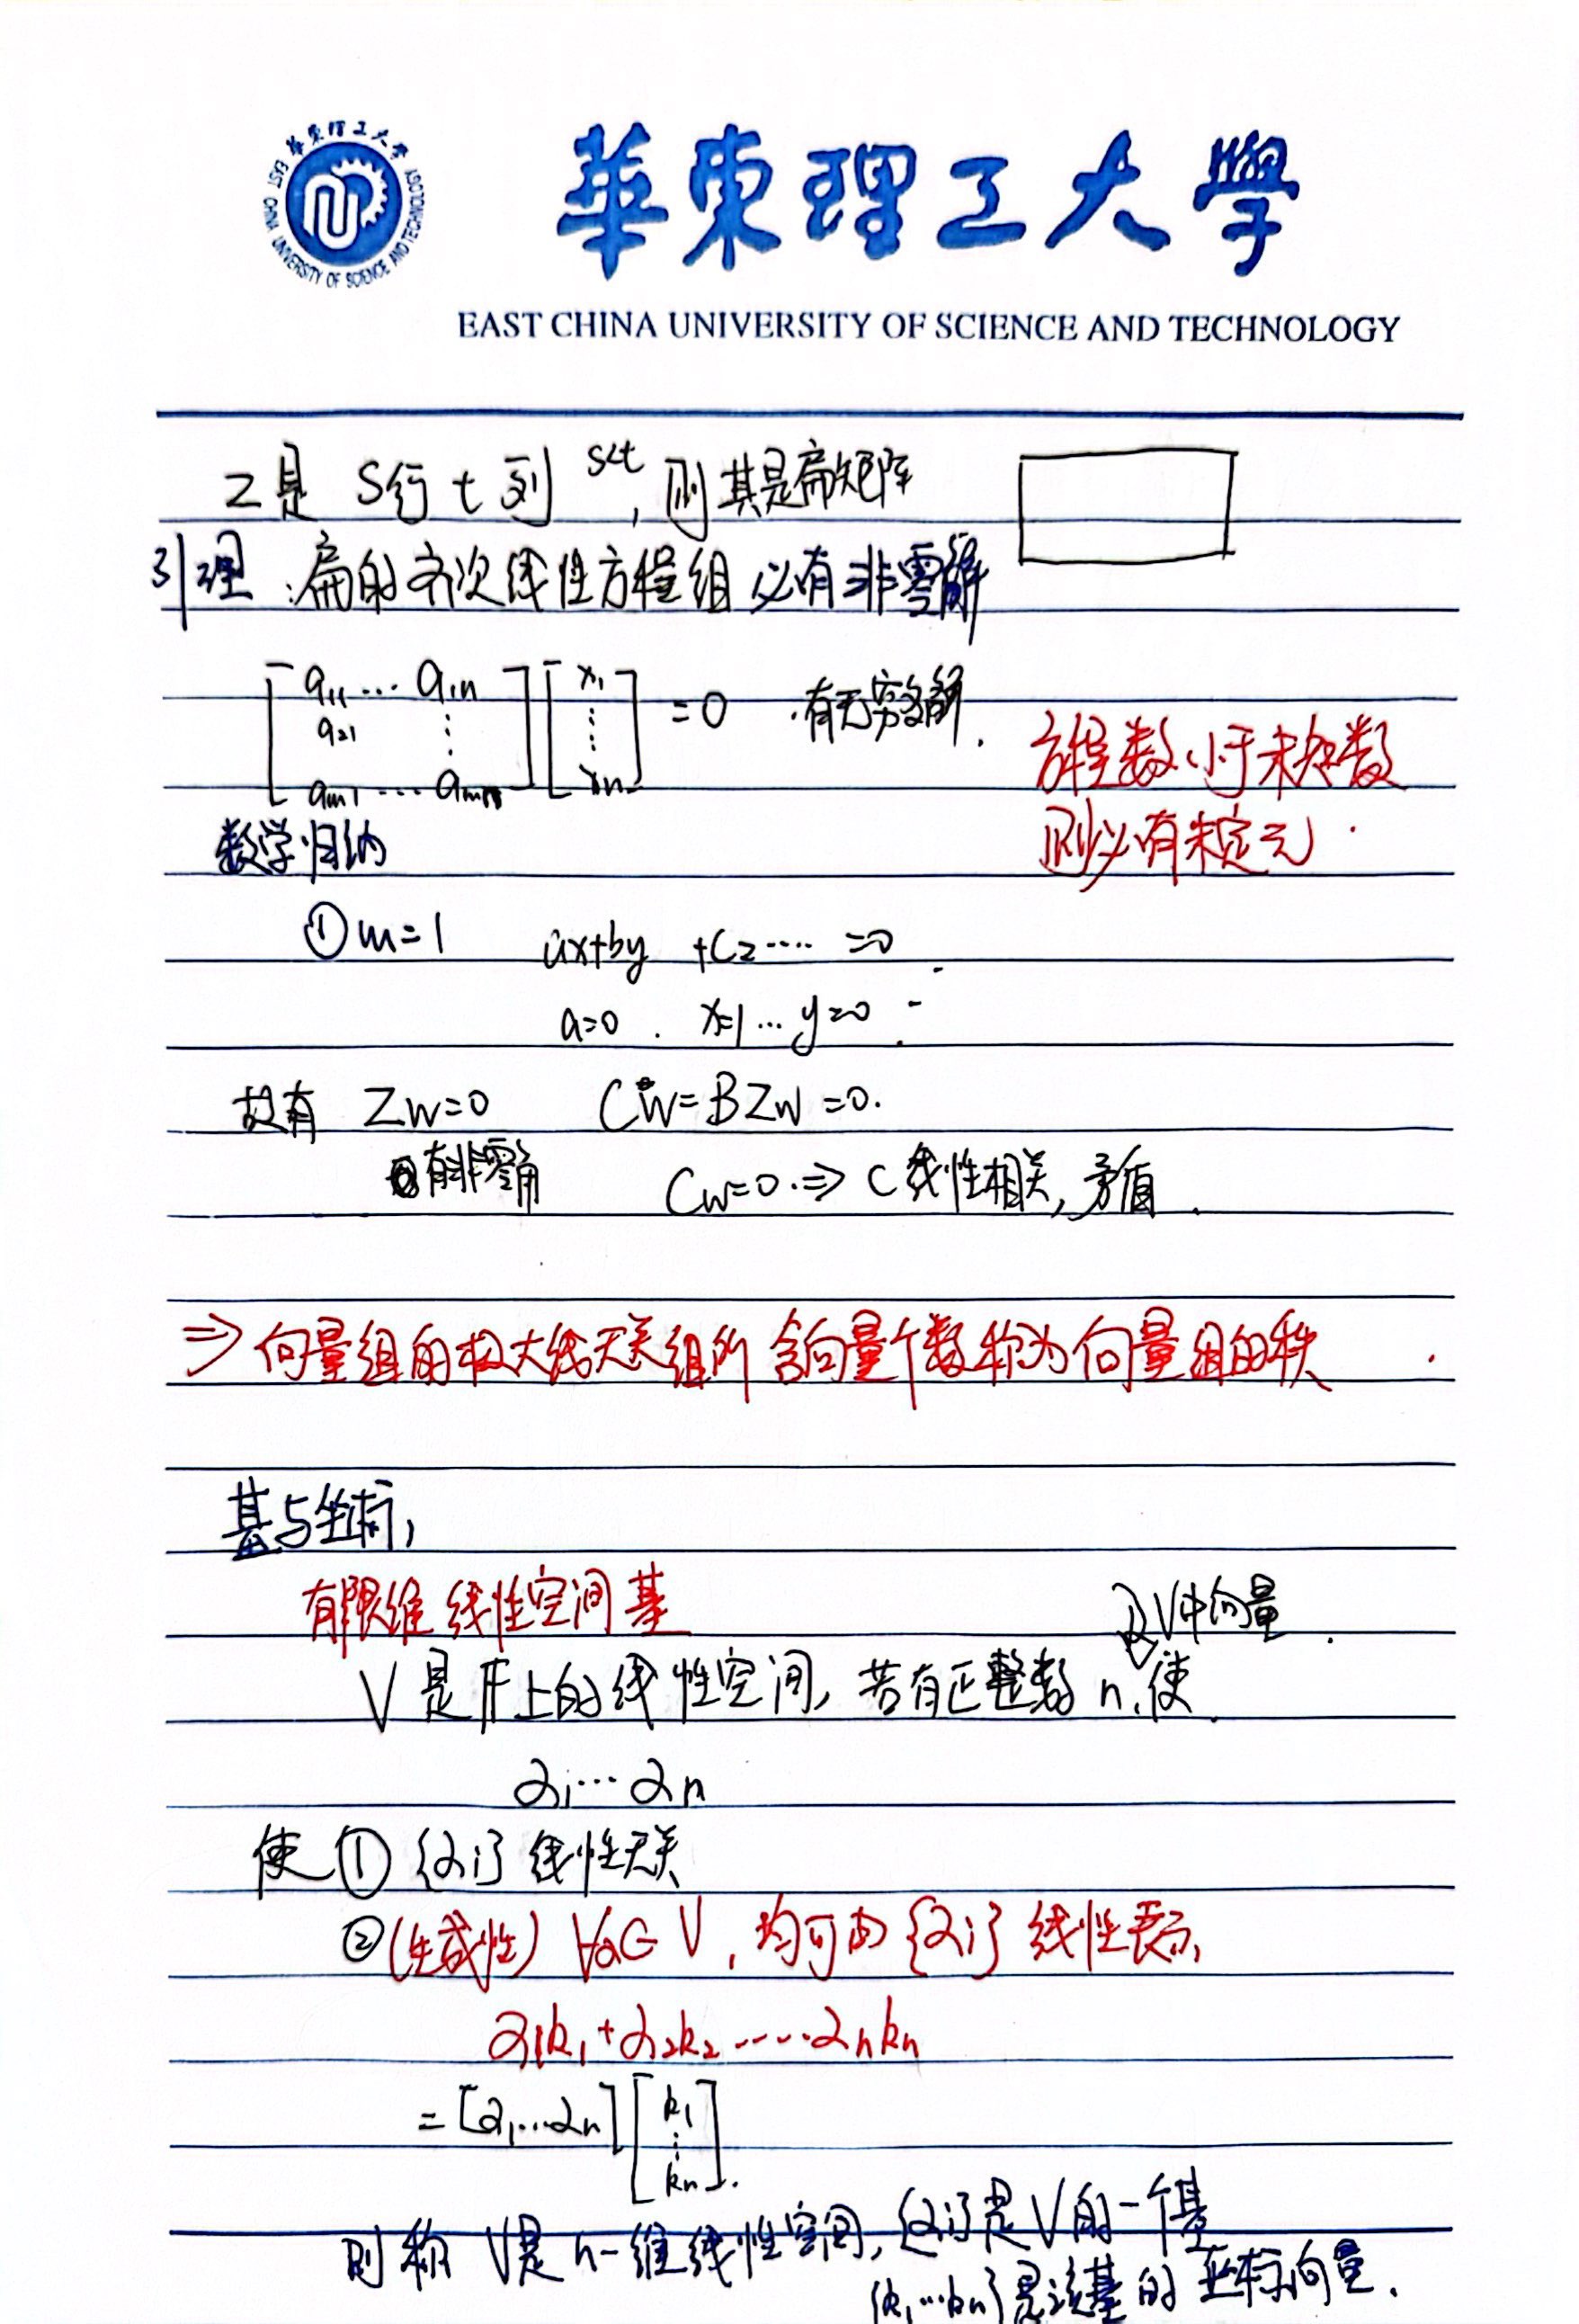 華東理工大学
EAST CHINA UNIVERSITY OF SCIENCE AND TECHNOLOGY
華東理工大學
EAST CHINA UNIVERSITY OF SCIENCE AND TECHNOLOGY
Z是 S行 t 列 s<t, 则其是扁矩阵
引理:扁的齐次线性方程组必有非零解
[a₁₁ … a₁ₙ] [x₁]
[a₂₁ ⋮] [⋮] = 0 有无穷多解.
[aₘ₁ … aₘₙ] [xₙ]
方程数小于未知数
则必有未定元.
数学归纳
① m=1 ax+by +cz…… =0
a=0. x=1 … y=0
故有 Zw=0 Cw=BZw=0.
有非零解 Cw=0.⇒ C 线性相关, 矛盾.
⇒ 向量组的极大线无关组所含向量个数称为向量组的秩.
基与坐标,
有限维线性空间基
及V中向量
V是F上的线性空间, 若有正整数 n, 使
α₁…αₙ
使 ① {αi} 线性无关
②(生成性) ∀α∈V, 均可由{αi}线性表示,
α₁k₁+α₂k₂……αₙkₙ
= [α₁…αₙ] [k₁ ⋮ kₙ].
则称 V是 n-维线性空间, {αi}是V的一个基
{k₁…kₙ}是该基的坐标向量.